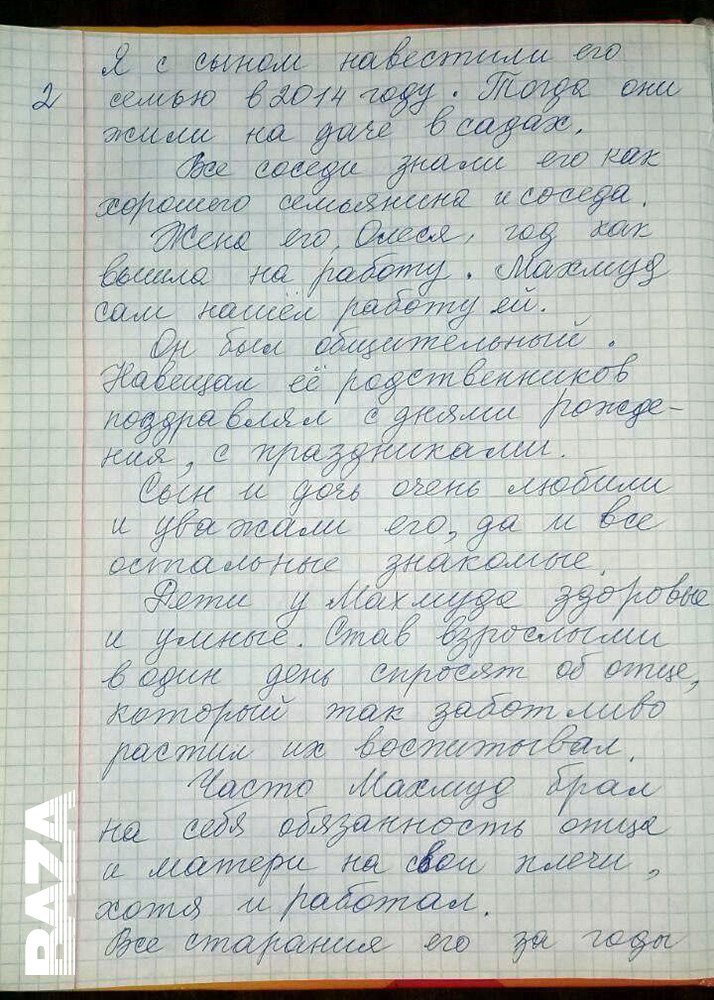 2
Я с сыном навестили его
семью в 2014 году. Тогда они
жили на даче в садах.
Все соседи знали его как
хорошего семьянина и соседа.
Жена его, Олеся, год как
вышла на работу. Махмуд
сам нашёл работу ей.
Он был общительный.
Навещал её родственников
поздравлял с днями рожде-
ния, с праздниками.
Сын и дочь очень любили
и уважали его, да и все
остальные знакомые.
Дети у Махмуда здоровые
и умные. Став взрослыми
в один день спросят об отце,
который так заботливо
растил их воспитывал.
Часто Махмуд брал
на себя обязанность отца
и матери на свои плечи,
хотя и работал.
Все старания его за годы
BAZA